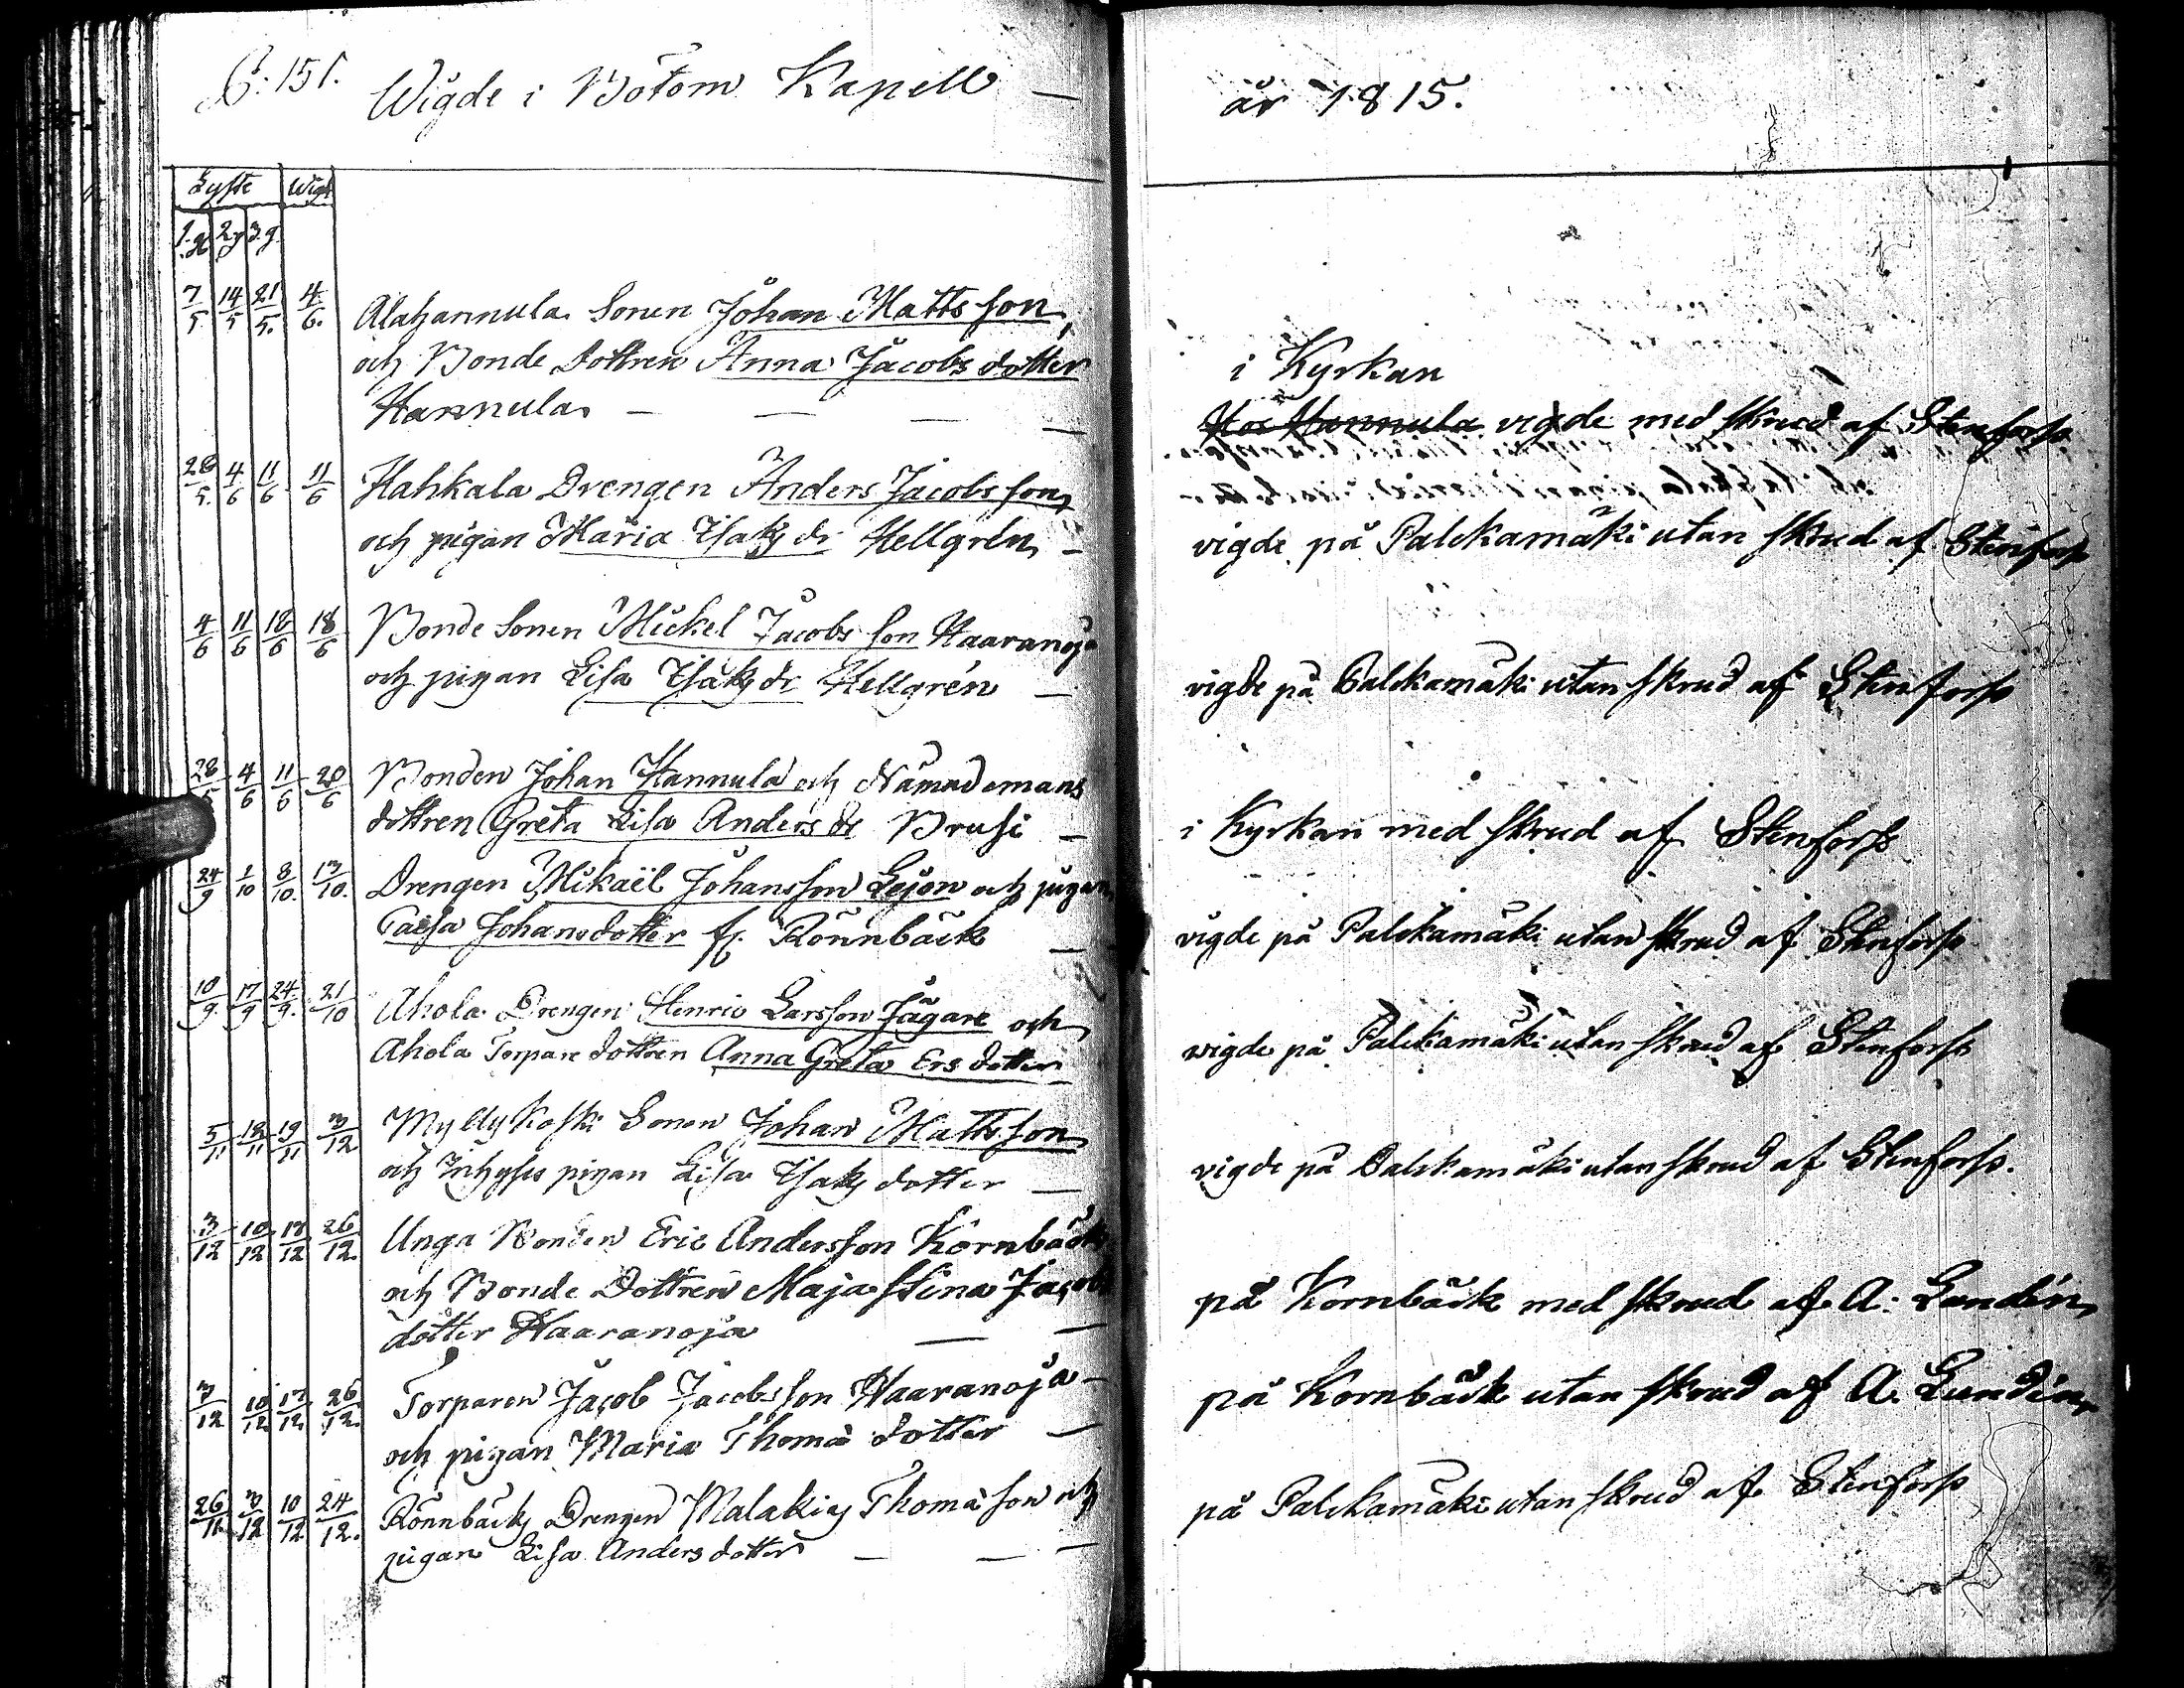 151.
Wigde i Bötom Kapell — år 1815.
Lyste Wigde
1.g 2.g 3.g.
7/5 14/5 21/5. 4/6. Alahannula Sonen Johan Mattsson,
och Bonde Dottren Anna Jacobs dotter
i Kyrkan
Hannula — — — — Hos Hannula vigde med skrud af Stenforss
28/5. 4/6 11/6 11/6 Hahkala Drengen Anders Jacobsson
och pigan Maria Isaks dr Hellgrén — vigde på Palckamäki utan skrud af Stenforss
4/6 11/6 18/6 18/6 Bonde Sonen Mickel Jacobs son Haaranoja
och pigan Lisa Isaks dr Hellgrén — vigde på Palckamäki utan skrud af Stenforss
28/5 4/6 11/6 20/6 Bonden Johan Hannula och Nämndemans
dottren Greta Lisa Anders dr Brusi — i Kyrkan med skrud af Stenforss
24/9 1/10 8/10. 13/10. Drengen Mikaël Johansson Lejon och pigan
Caisa Johansdotter fr. Rönnbäck — vigde på Palckamäki utan skrud af Stenforss
10/9. 17/9 24/9. 21/10 Ahola Drengen Henric Larsson Jägare och
Ahola Torpare dottren Anna Greta Ers dotter wigde på Palckamäki utan skrud af Stenforss
5/11 12/11 19/11 3/12 Myllykoski Sonen Johan Mattsson
och Inhyses pigan Lisa Isaks dotter — vigde på Palckamäki utan skrud af Stenforss.
3/12 10/12 17/12 26/12. Unga Bonden Eric Andersson Kornbäck
och Bonde Dottren Maja Stina Jacobs
dotter Haaranoja — — på Kornbäck med skrud af A: Lundén
3/12 10/12 17/12. 26/12. Torparen Jacob Jacobsson Haaranoja —
och pigan Maria Thomä dotter — på Kornbäck utan skrud af A. Lundén
26/11. 3/12 10/12 24/12. Rönnbäcks Drengen Malakias Thomä son och
pigan Lisa Anders dotter — — — på Palckamäki utan skrud af Stenforss